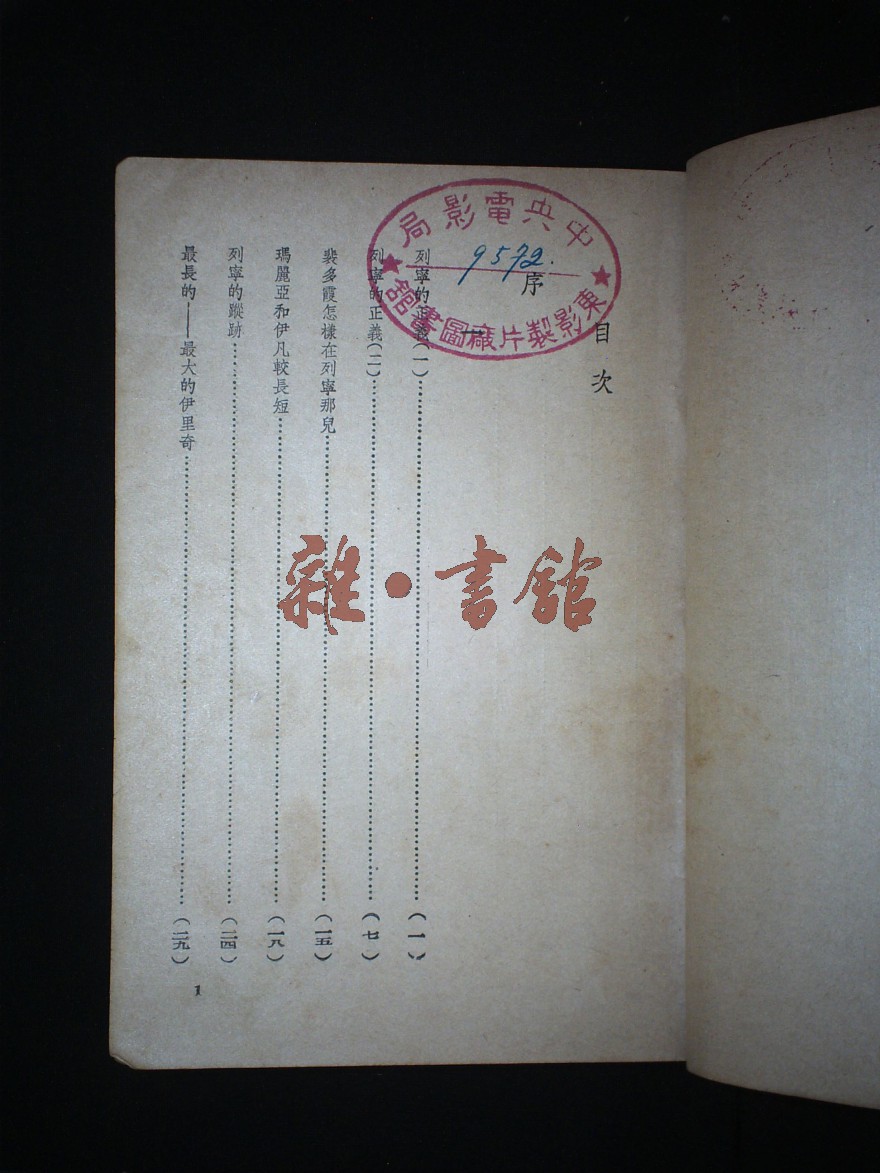 目次
中央電影局
9572.
東影製片廠圖書館
序
一
列寧的正義(一)……(一)
列寧的正義(二)……(七)
裴多霞怎樣在列寧那兒……(一五)
瑪麗亞和伊凡較長短……(一八)
列寧的蹤跡……(二四)
最長的——最大的伊里奇……(二九)
1
雜·書館